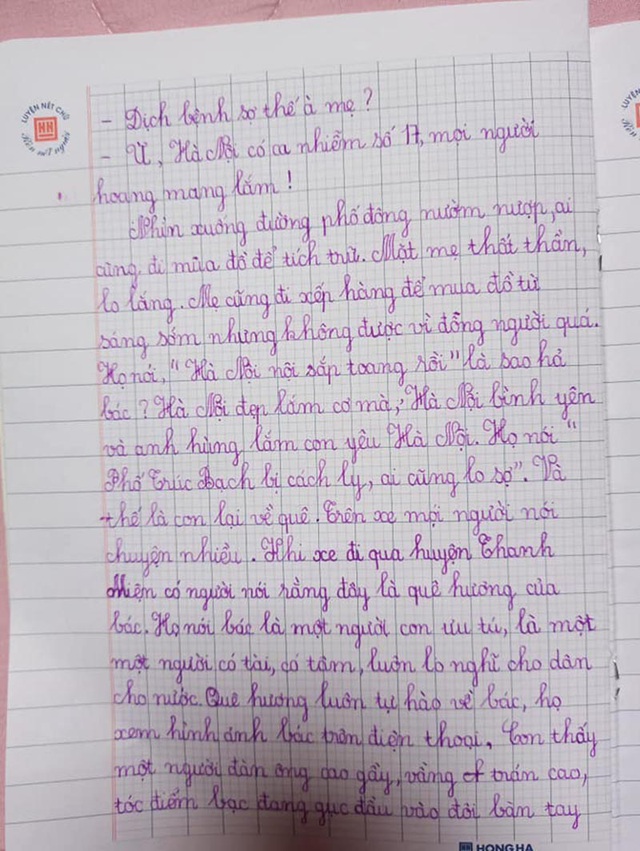 LUYỆN NÉT CHỮ
HH
Rèn nết người
- Dịch bệnh sợ thế à mẹ?
- Ừ, Hà Nội có ca nhiễm số 17, mọi người
hoang mang lắm!
Nhìn xuống đường phố đông nườm nượp, ai
cũng đi mua đồ để tích trữ. Mặt mẹ thất thần,
lo lắng. Mẹ cũng đi xếp hàng để mua đồ từ
sáng sớm nhưng không được vì đông người quá.
Họ nói, "Hà Nội nội sắp toang rồi" là sao hả
bác? Hà Nội đẹp lắm cơ mà, Hà Nội bình yên
và anh hùng lắm con yêu Hà Nội. Họ nói "
Phố Trúc Bạch bị cách ly, ai cũng lo sợ". Và
thế là con lại về quê. Trên xe mọi người nói
chuyện nhiều. Khi xe đi qua huyện Thanh
Miện có người nói rằng đây là quê hương của
bác. Họ nói bác là một người con ưu tú, là một
một người có tài, có tâm, luôn lo nghĩ cho dân
cho nước. Quê hương luôn tự hào về bác, họ
xem hình ảnh bác trên điện thoại. Con thấy
một người đàn ông cao gầy, vầng trán cao,
tóc điểm bạc đang gục đầu vào đôi bàn tay
HH HONG HA
LUYỆN